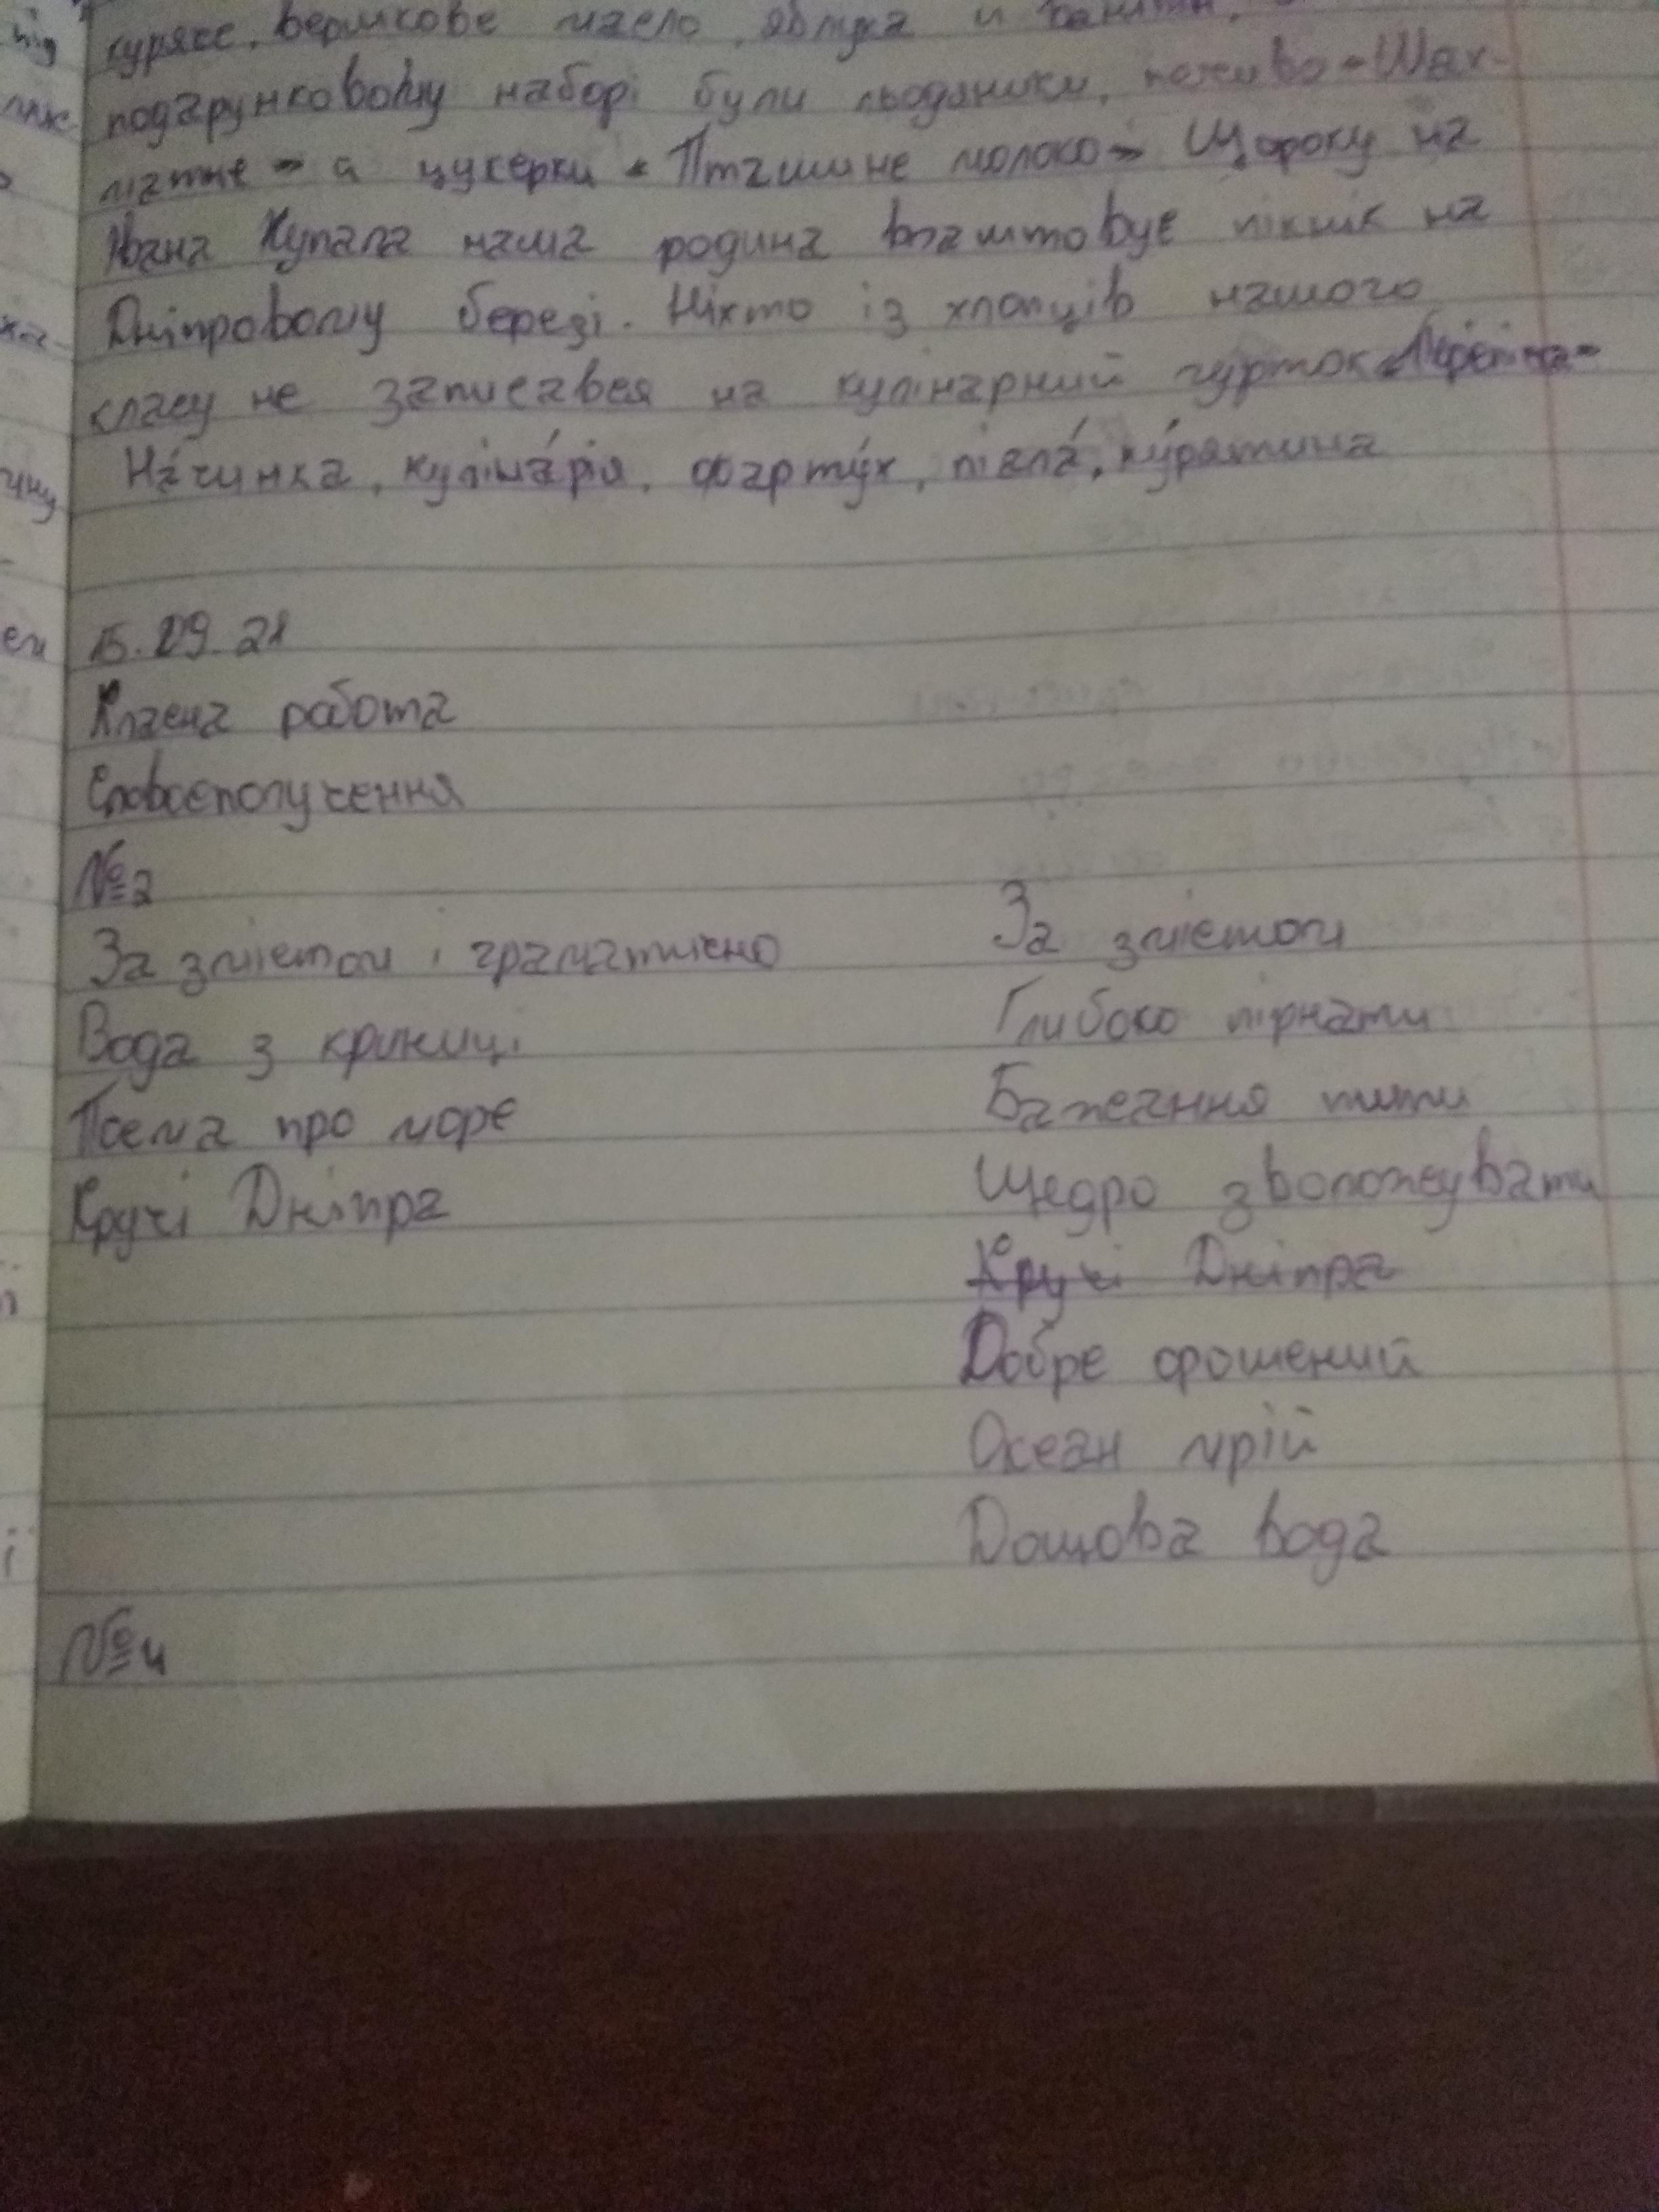 куряче, вершкове масло, яблука и
подарунковому наборі були льодяники, печиво «Шах-
матне» а цукерки «Пташине молоко» Щороку на
Івана Купала наша родина влаштовує пікнік на
Дніпровому березі. Ніхто із хлопців нашого
класу не записався на кулінарний гурток
На́чинка, куліна́рія, фарту́х, піала́, ку́рятина
15.09.21
Класна работа
Словосполучення
№2
За змістом і граматично
Вода з криниці
Поема про море
Кручі Дніпра
За змістом
Глибоко пірнати
Бажання пити
Щедро зволожувати
Кручі Дніпра
Добре орошений
Океан мрій
Дощова вода
№4